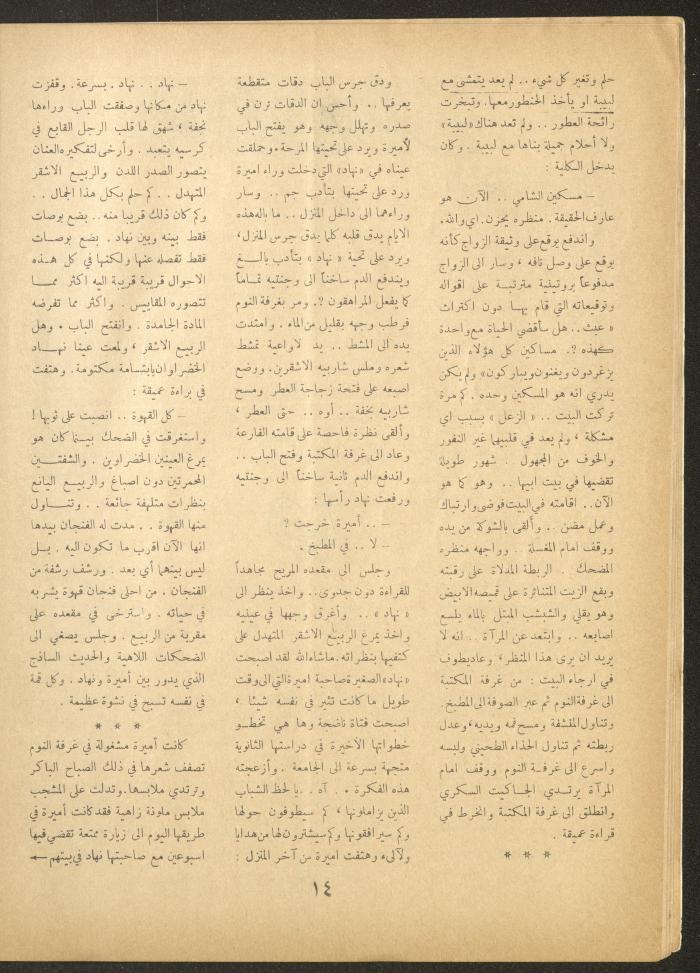 حلم وتغير كل شيء .. لم يعد يتمشى مع
لبيبة او يأخذ الحنطور معها. وتبخرت
رائحة العطور .. ولم تعد هناك «لبيبة»
ولا أحلام جميلة بناها مع لبيبة . وكان
يدخل الكلية :
– مسكين الشامي .. الآن هو
عارف الحقيقة . منظره يحزن. اي والله.
واندفع يوقع على وثيقة الزواج كأنه
يوقع على وصل تافه ، وسار الى الزواج
مدفوعاً بروتينية مترتبة على اقواله
وتوقيعاته التي قام بها دون اكتراث
« عبث .. هل سأقضي الحياة مع واحدة
كهذه ؟. مساكين كل هؤلاء الذين
يزغردون ويغنون ويباركون» ولم يكن
يدري انه هو المسكين وحده . كم مرة
تركت البيت .. « الزعل » بسبب اي
مشكلة ، ولم يعد في قلبيهما غير النفور
والخوف من المجهول . شهور طويلة
تقضيها في بيت ابيها .. وهو كما هو
الآن .. اقامته في البيت فوضى وارتباك
وعمل مضن .. وألقى بالشوكة من يده
ووقف امام المغسلة .. وواجهه منظره
المضحك . الربطة المدلاة على رقبته
وبقع الزيت المتناثرة على قميصه الابيض
وهو يقلي والشبشب المبتل بالماء يلسع
اصابعه .. وابتعد عن المرآة .. انه لا
يريد ان يرى هذا المنظر ، وعاد يطوف
في ارجاء البيت : من غرفة المكتبة
الى غرفة النوم ثم عبر الصوفة الى المطبخ.
وتناول المنشفة ومسح فمه ويديه ، وعدل
ربطته ثم تناول الحذاء الطحيني ولبسه
واسرع الى غرفة النوم ووقف امام
المرآة يرتدي الجاكيت السكري
وانطلق الى غرفة المكتبة وانخرط في
قراءة عميقة .
* * *
ودق جرس الباب دقات متقطعة
يعرفها .. وأحس ان الدقات ترن في
صدره وتهلل وجهه وهو يفتح الباب
لأميرة ويرد على تحيتها المرحة . وحملقت
عيناه في «نهاد» التي دخلت وراء اميرة
ورد على تحيتها بتأدب جم .. وسار
وراءهما الى داخل المنزل .. ما باله هذه
الايام يدق قلبه كلما يدق جرس المنزل ،
ويرد على تحية « نهاد » بتأدب بالغ
ويندفع الدم ساخناً الى وجنتيه تماماً
كما يفعل المراهقون ؟. ومر بغرفة النوم
فرطب وجهه بقليل من الماء . وامتدت
يده الى المشط .. يد لاواعية تمشط
شعره وملس شاربيه الاشقرين . ووضع
اصبعه على فتحة زجاجة العطر ومسح
شاربيه بخفة .. أوه .. حتى العطر ،
وألقى نظرة فاحصة على قامته الفارعة
وعاد الى غرفة المكتبة وفتح الباب ..
واندفع الدم ثانية ساخناً الى وجنتيه
ورفعت نهاد رأسها :
– .. أميرة خرجت ؟
– لا .. في المطبخ .
وجلس الى مقعده المريح مجاهداً
للقراءة دون جدوى .. واخذ ينظر الى
« نهاد » .. وأغرق وجهها في عينيه
واخذ يمرغ الربيع الاشقر المتهدل على
كتفيها بنظراته . ماشاء الله لقد اصبحت
«نهاد» الصغيرة صاحبة اميرة التي الى وقت
طويل ما كانت تثير في نفسه شيئا ،
اصبحت فتاة ناضجة وها هي تخطو
خطواتها الأخيرة في دراستها الثانوية
متجهة بسرعة الى الجامعة . وأزعجته
هذه الفكرة . آه .. يا لحظ الشباب
الذين يزاملونها ، كم سيطوفون حولها
وكم سيرافقونها وكم سيشترون لها من هدايا
ولآلىء وهتفت اميرة من آخر المنزل :
– نهاد .. نهاد . بسرعة . وقفزت
نهاد من مكانها وصفقت الباب وراءها
بخفة ، شهق لها قلب الرجل القابع في
كرسيه يتعبد . وأرخى لتفكيره العنان
يتصور الصدر اللدن والربيع الاشقر
المتهدل .. كم حلم بكل هذا الجمال ..
وكم كان ذلك قريبا منه .. بضع بوصات
فقط بينه وبين نهاد . بضع بوصات
فقط تفصله عنها ولكنها في كل هذه
الاحوال قريبة قريبة اليه اكثر مما
تتصوره المقاييس . واكثر مما تفرضه
المادة الجامدة . وانفتح الباب . وهل
الربيع الاشقر ، ولمعت عينا نهاد
الخضراوان بابتسامة مكتومة . وهتفت
في براءة عميقة :
– كل القهوة .. انصبت على ثوبها !
واستغرقت في الضحك بينما كان هو
يمرغ العينين الخضراوين . والشفتين
المحمرتين دون اصباغ والربيع اليانع
بنظرات متلهفة جائعة .. وتناول
منها القهوة .. مدت له الفنجان بيدها
انها الآن اقرب ما تكون اليه . بل
ليس بينهما أي بعد . ورشف رشفة من
الفنجان . من احلى فنجان قهوة يشربه
في حياته . واسترخى في مقعده على
مقربة من الربيع . وجلس يصغي الى
الضحكات اللاهية والحديث الساذج
الذي يدور بين أميرة ونهاد . وكل قمة
في نفسه تسبح في نشوة عظيمة .
* * *
كانت أميرة مشغولة في غرفة النوم
تصفف شعرها في ذلك الصباح الباكر
وترتدي ملابسها . وتدلت على المشجب
ملابس ملونة زاهية فقد كانت أميرة في
طريقها اليوم الى زيارة ممتعة تقضي فيها
اسبوعين مع صاحبتها نهاد في بيتهم ←
١٤